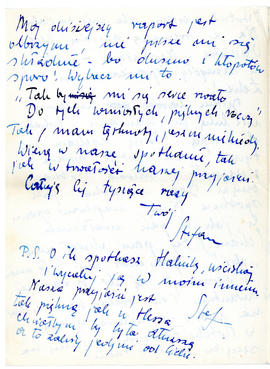 Mój dzisiejszy raport jest
olbrzymi, nie pisze mi się
składnie - bo duszno i kłopotów
sporo. Wybacz mi to.
„Tak mi się serce
Do tych wzniosłych, pięknych rzeczy"
Tak, mam tęsknoty, jestem
Wierzę w nasze spotkanie, tak
jak w trwałość naszej przyjaźni.
Całuję Cię tysiące razy
Twój
Stefan
P.S. O ile spotkasz Halinkę, uściskaj
i wycałuj ją w moim imieniu.
Nasza przyjaźń jest
tak piękną jak u
chciałbym by była dłuższą
a to zależy jedynie od Ciebie.
Stef